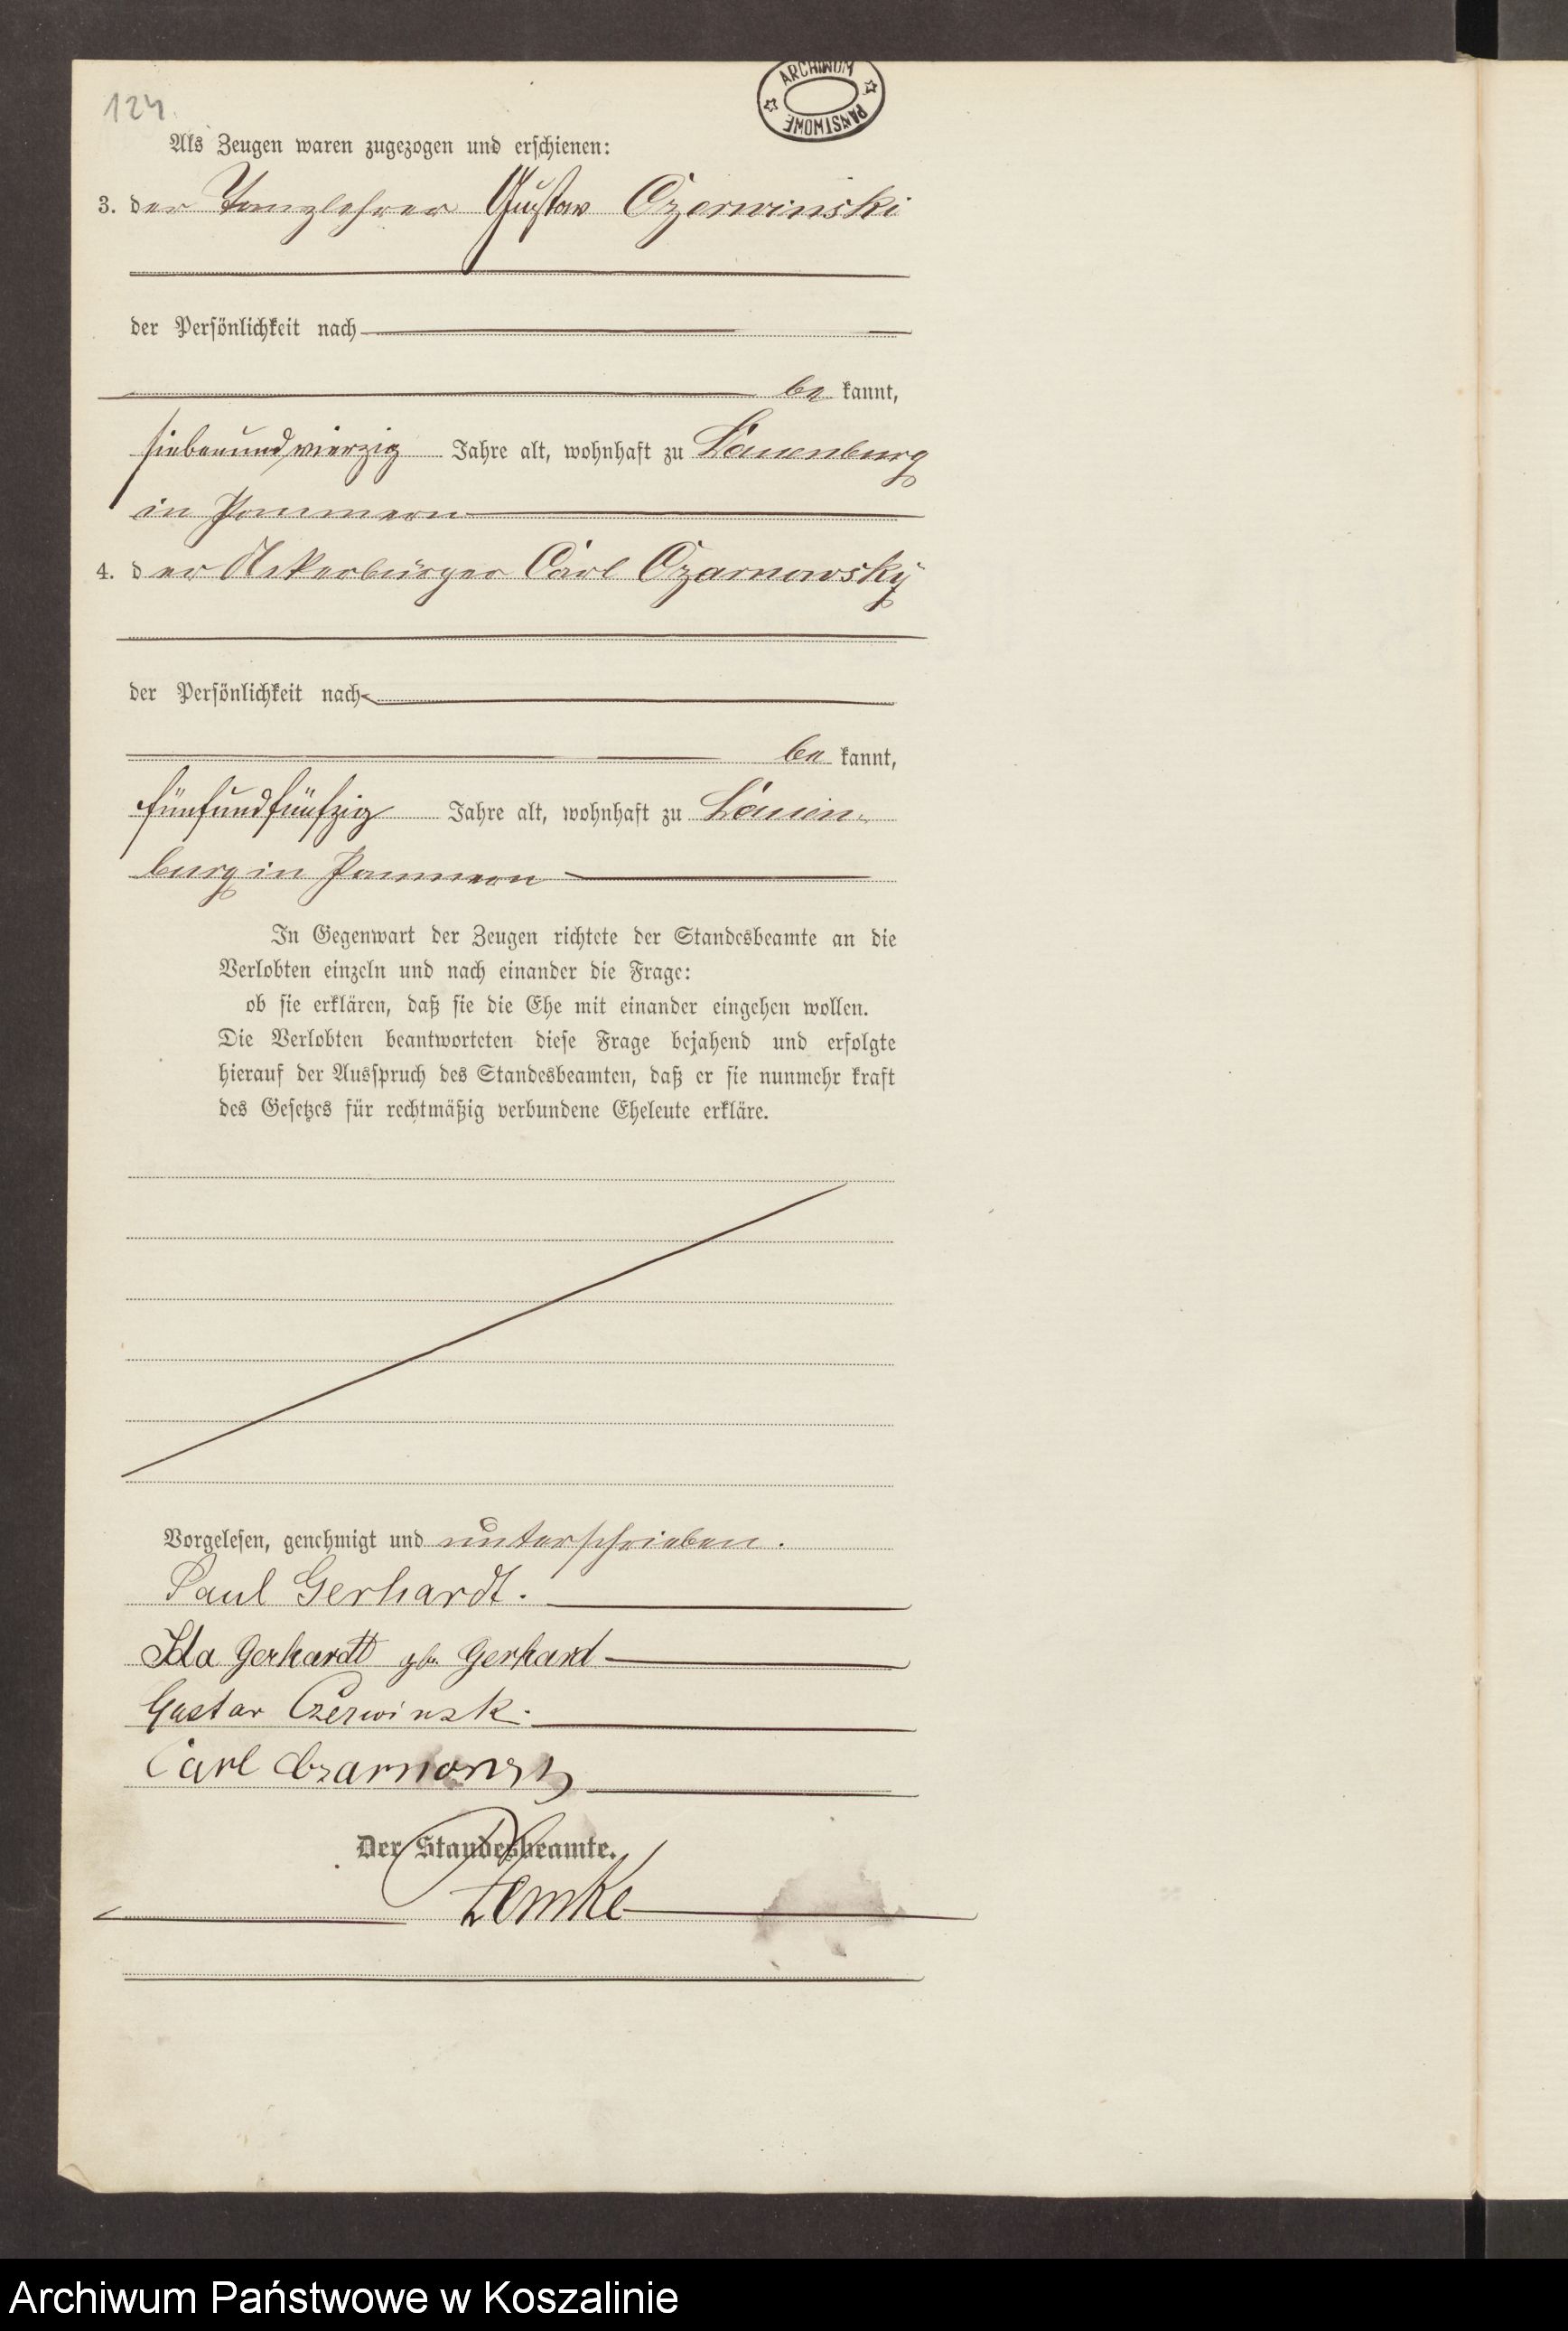 124.
ARCHIWUM PAŃSTWOWE
Als Zeugen waren zugezogen und erschienen:
3. der Tanzlehrer Gustav Czerwinski
der Persönlichkeit nach
be kannt,
siebenundvierzig Jahre alt, wohnhaft zu Lauenburg
in Pommern
4. der Ackerbürger Carl Czarnowsky
der Persönlichkeit nach
be kannt,
fünfundfünfzig Jahre alt, wohnhaft zu Lauen-
burg in Pommern
In Gegenwart der Zeugen richtete der Standesbeamte an die
Verlobten einzeln und nach einander die Frage:
ob sie erklären, daß sie die Ehe mit einander eingehen wollen.
Die Verlobten beantworteten diese Frage bejahend und erfolgte
hierauf der Ausspruch des Standesbeamten, daß er sie nunmehr kraft
des Gesetzes für rechtmäßig verbundene Eheleute erkläre.
Vorgelesen, genehmigt und unterschrieben.
Paul Gerhardt.
Ida Gerhardt gb. Gerhard
Gustav Czerwinski
Carl Czarnowsky
Der Standesbeamte.
Lemke
Archiwum Państwowe w Koszalinie